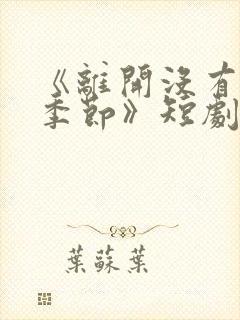 《離開沒有
季節》短劇
葉蘇葉